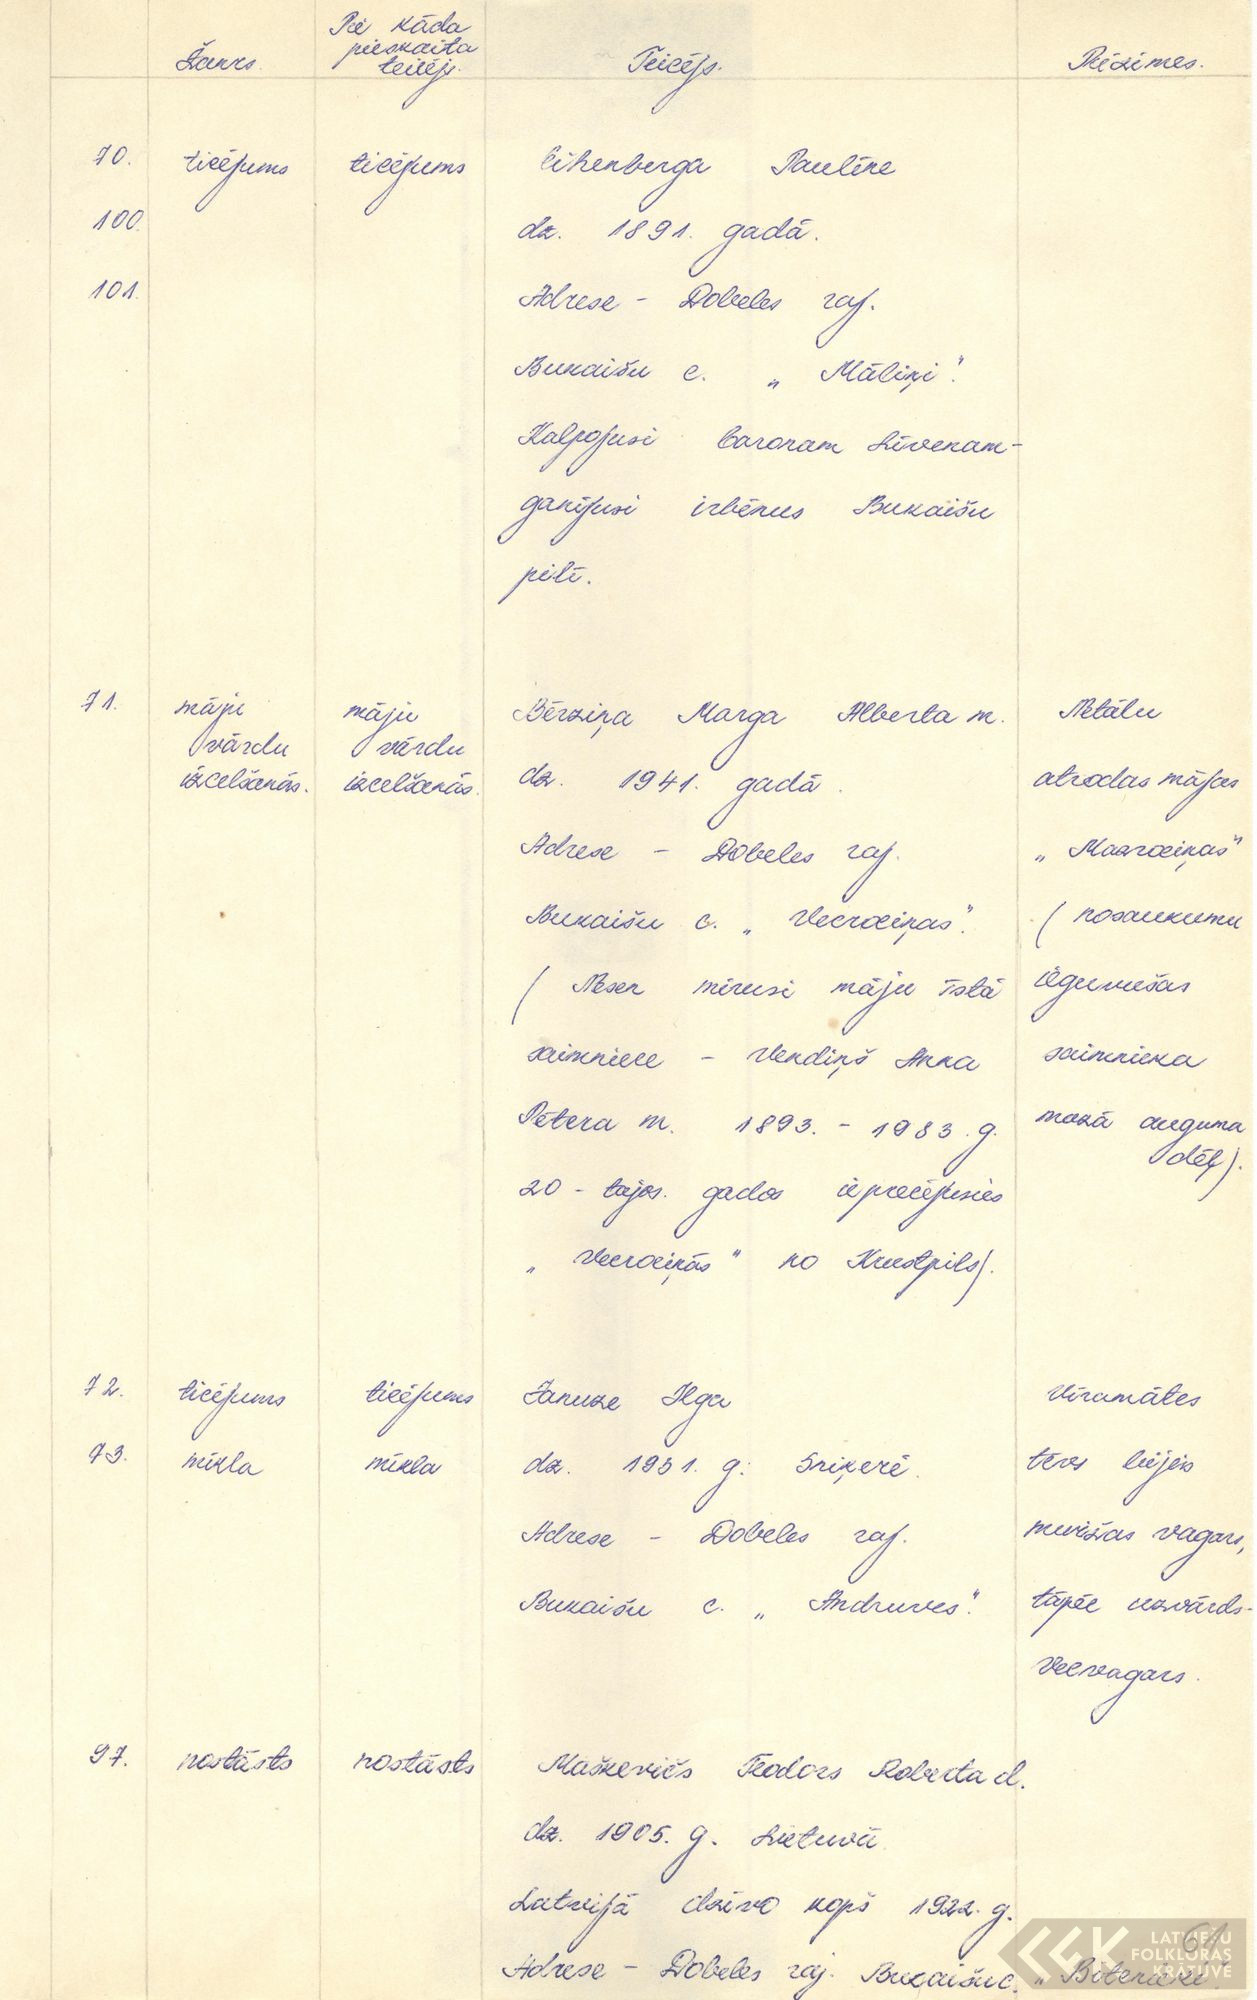 Žanrs. Pie kāda pieskaita teicējs. Teicējs. Piezīmes.
70. ticējums ticējums Eihenberga Paulīne
100. dz. 1891. gadā.
101. Adrese - Dobeles raj.
Bukaišu c. „ Māliņi".
Kalpojusi baronam Līvenam-
ganījusi irbēnus Bukaišu
pilī.
71. māju māju Bērziņa Marga Alberta m. Netālu
vārdu vārdu
izcelšanās. izcelšanās. dz. 1941. gadā. atrodas mājas
Adrese - Dobeles raj. „ Mazraiņas"
Bukaišu c. „ Vecraiņas". ( nosaukumu
( Nesen mirusi māju īstā ieguvušas
saimniece - Vendiņš Anna saimnieka
Pētera m. 1893. - 1983. g. mazā auguma
dēļ).
20 - tajos. gados ieprecējusies
„ Vecraiņās " no Krustpils).
72. ticējums ticējums Januze Ilga Vīramātes
73. mīkla mīkla dz. 1931. g. Sniķerē. tēvs bijis
Adrese - Dobeles raj. muižas vagars,
Bukaišu c. „ Andruves". tāpēc uzvārds-
Vecvagars.
97. nostāsts nostāsts Maškevičs Teodors Roberta d.
dz. 1905. g. Lietuvā.
Latvijā dzīvo kopš 1922. g.
Adrese - Dobeles raj. Bukaišu c.
LATVIEŠU
FOLKLORAS
KRĀTUVE